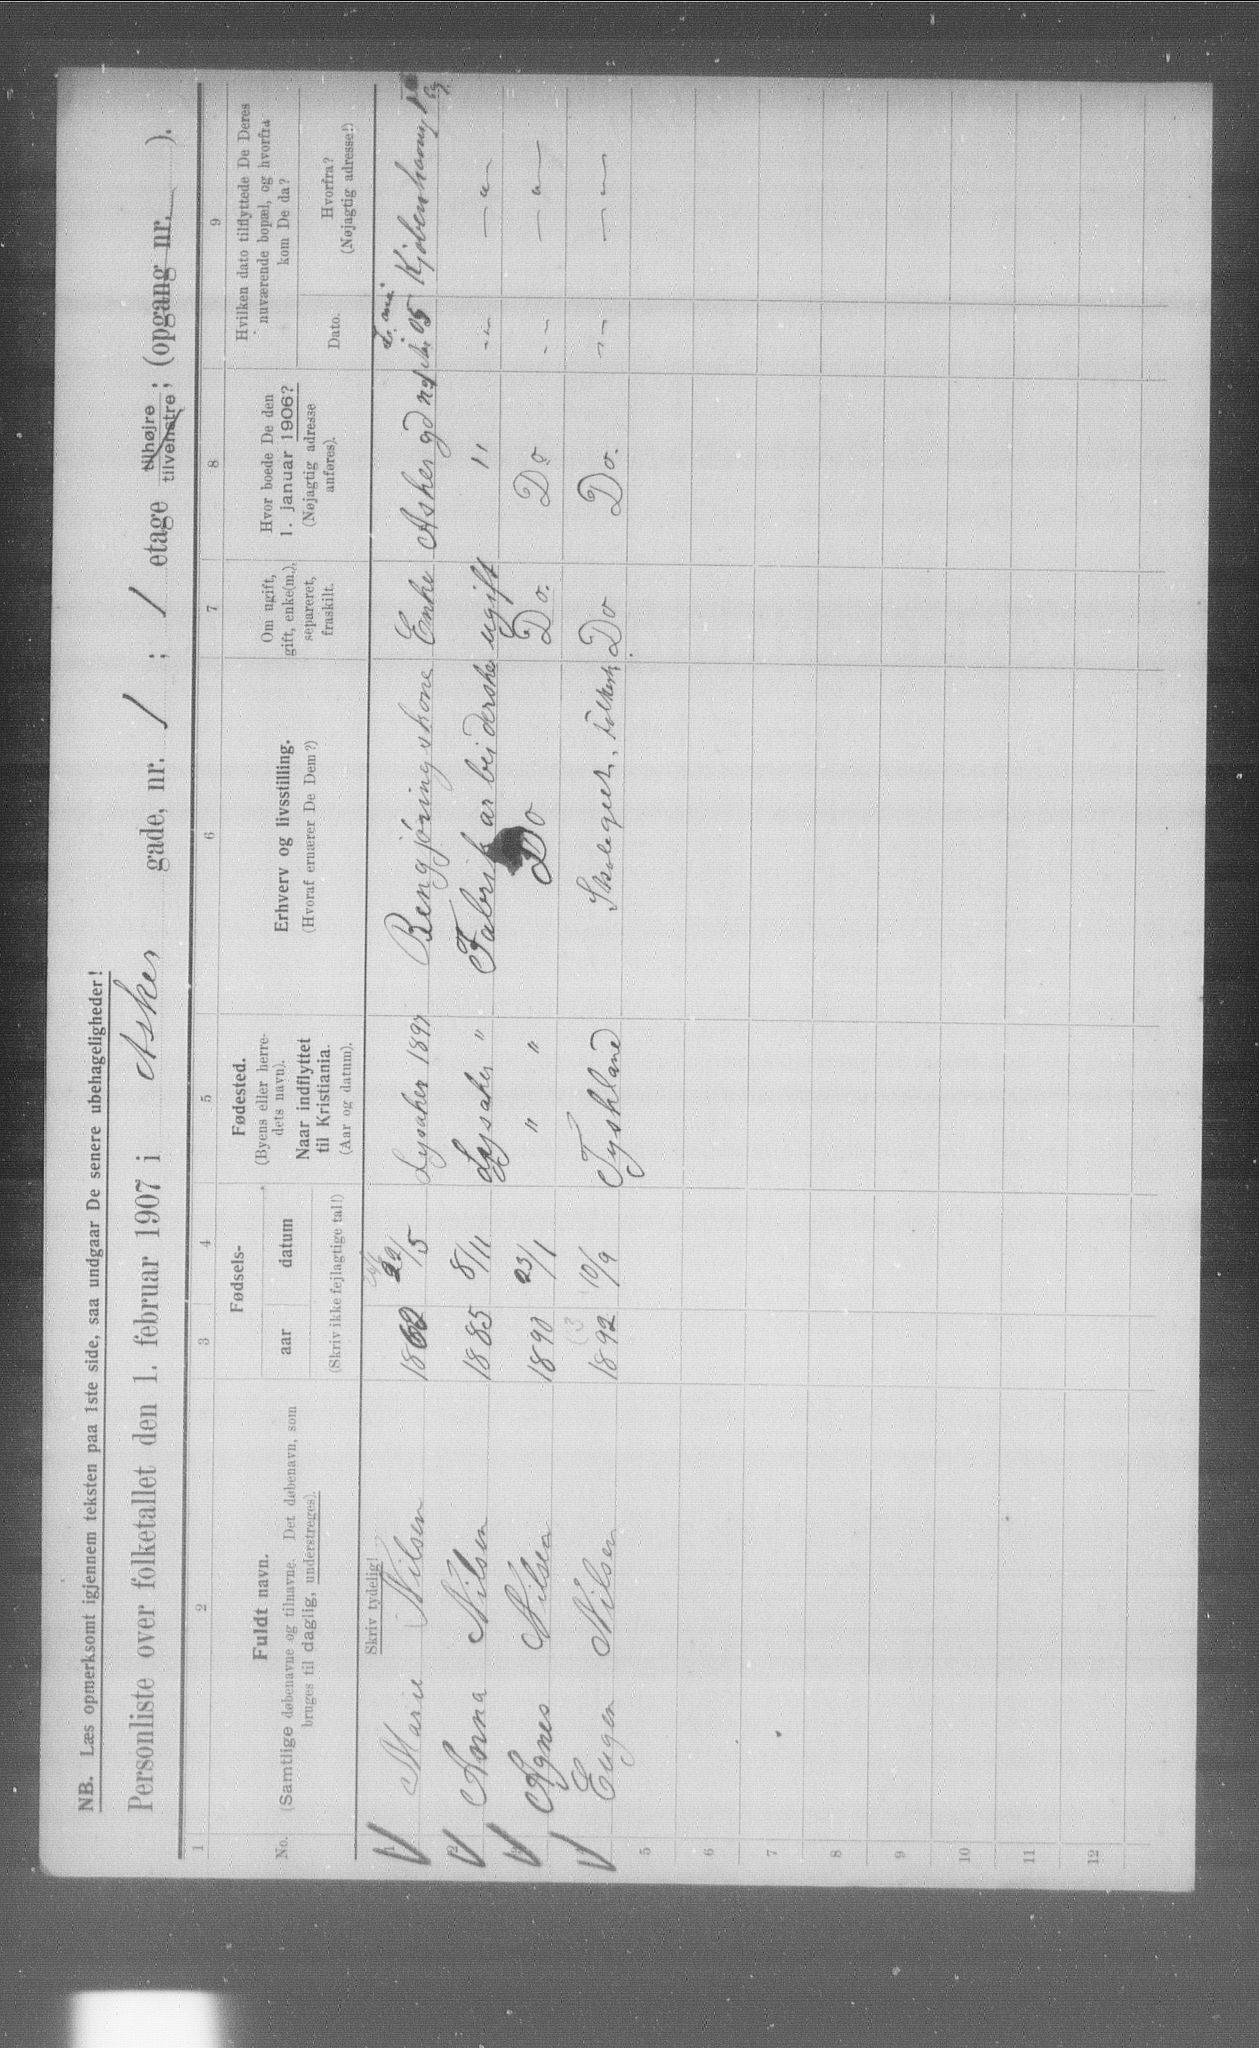 NB. Læs opmerksomt igjennem teksten paa 1ste side, saa undgaar De senere ubehageligheder!
Personliste over folketallet den 1. februar 1907 i Asker gade, nr. 1 ; 1 etage tilhøjre tilvenstre ; (opgang nr. ).
1 2 3 4 5 6 7 8 9
No.
Fuldt navn.
(Samtlige døbenavne og tilnavne. Det døbenavn, som
bruges til daglig, understreges).
Fødsels-
aar datum
(Skriv ikke fejlagtige tal!)
Fødested.
(Byens eller herre-
dets navn).
Naar indflyttet
til Kristiania.
(Aar og datum).
Erhverv og livsstilling.
(Hvoraf ernærer De Dem?)
Om ugift,
gift, enke(m.),
separeret,
fraskilt.
Hvor boede De den
1. januar 1906?
(Nøjagtig adresse
anføres).
Hvilken dato tilflyttede De Deres
nuværende bopæl, og hvorfra
kom De da?
Dato.
Hvorfra?
(Nøjagtig adresse!)
Skriv tydelig!
1 Marie Nilsen 22/5 Lysaker 1897 Rengjøringskone Enke Asker gd 05 Kjøbenhavng
2 Anna Nilsen 1885 8/11 Lysaker " Fabrikarbeiderske ugift " - " - — " —
3 Agnes Nilsen 1890 23/1 " " Do Do. Do - - — " —
4 Eugen Nilsen 1892 10/9 Tyskland Skolegut, Do Do. - - — " —
5
6
7
8
9
10
11
12